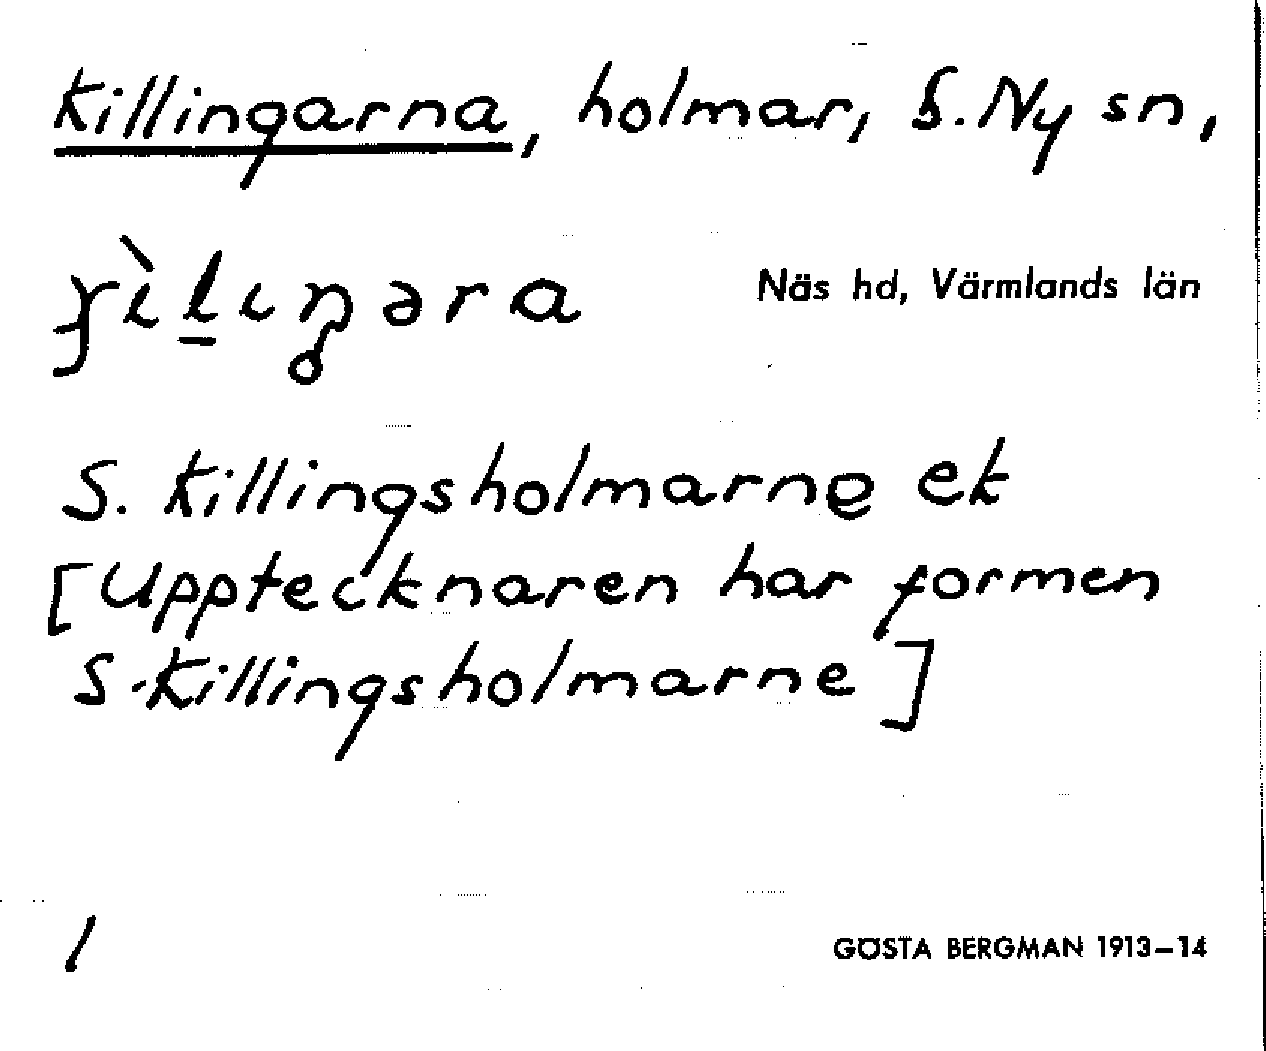 Killingarna, holmar, S. Ny sn,
Näs hd, Värmlands län
S. Killingsholmarne ek
[Upptecknaren har formen
S-Killingsholmarne]
1
GÖSTA BERGMAN 1913–14